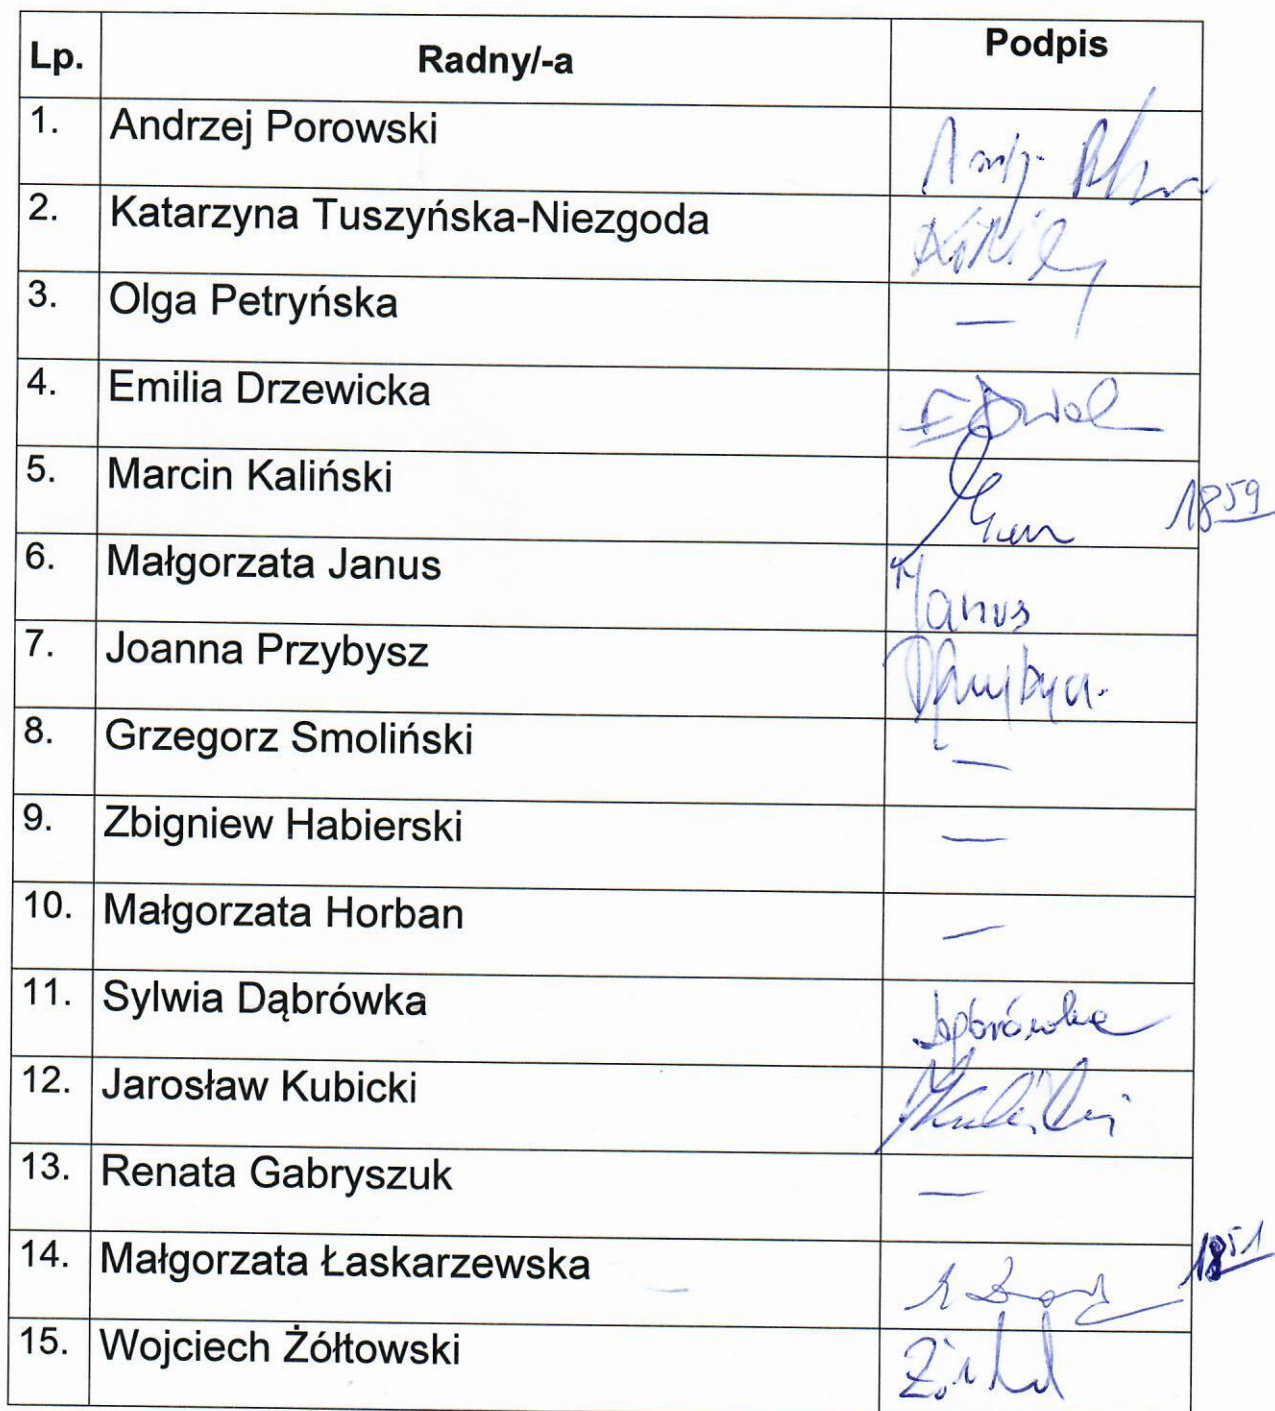 Lp. Radny/-a Podpis
1. Andrzej Porowski
2. Katarzyna Tuszyńska-Niezgoda
3. Olga Petryńska —
4. Emilia Drzewicka
5. Marcin Kaliński 18 59
6. Małgorzata Janus Janus
7. Joanna Przybysz
8. Grzegorz Smoliński —
9. Zbigniew Habierski —
10. Małgorzata Horban —
11. Sylwia Dąbrówka Dąbrówka
12. Jarosław Kubicki
13. Renata Gabryszuk —
14. Małgorzata Łaskarzewska 18 51
15. Wojciech Żółtowski